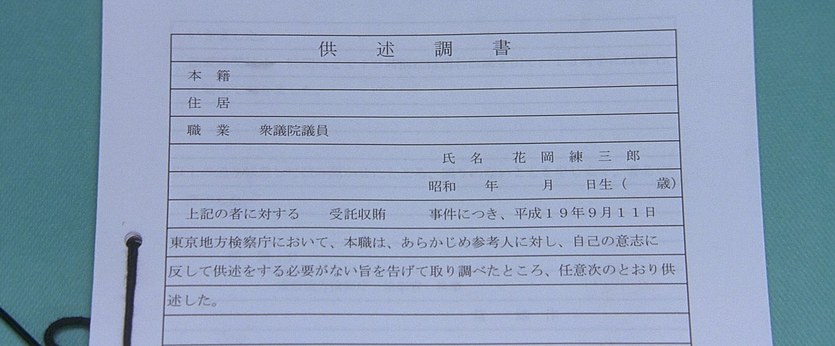 供述調書
本籍
住居
職業 衆議院議員
氏名 花岡練三郎
昭和 年 月 日生( 歳)
上記の者に対する 受託収賄 事件につき、平成19年9月11日
東京地方検察庁において、本職は、あらかじめ参考人に対し、自己の意志に
反して供述をする必要がない旨を告げて取り調べたところ、任意次のとおり供
述した。